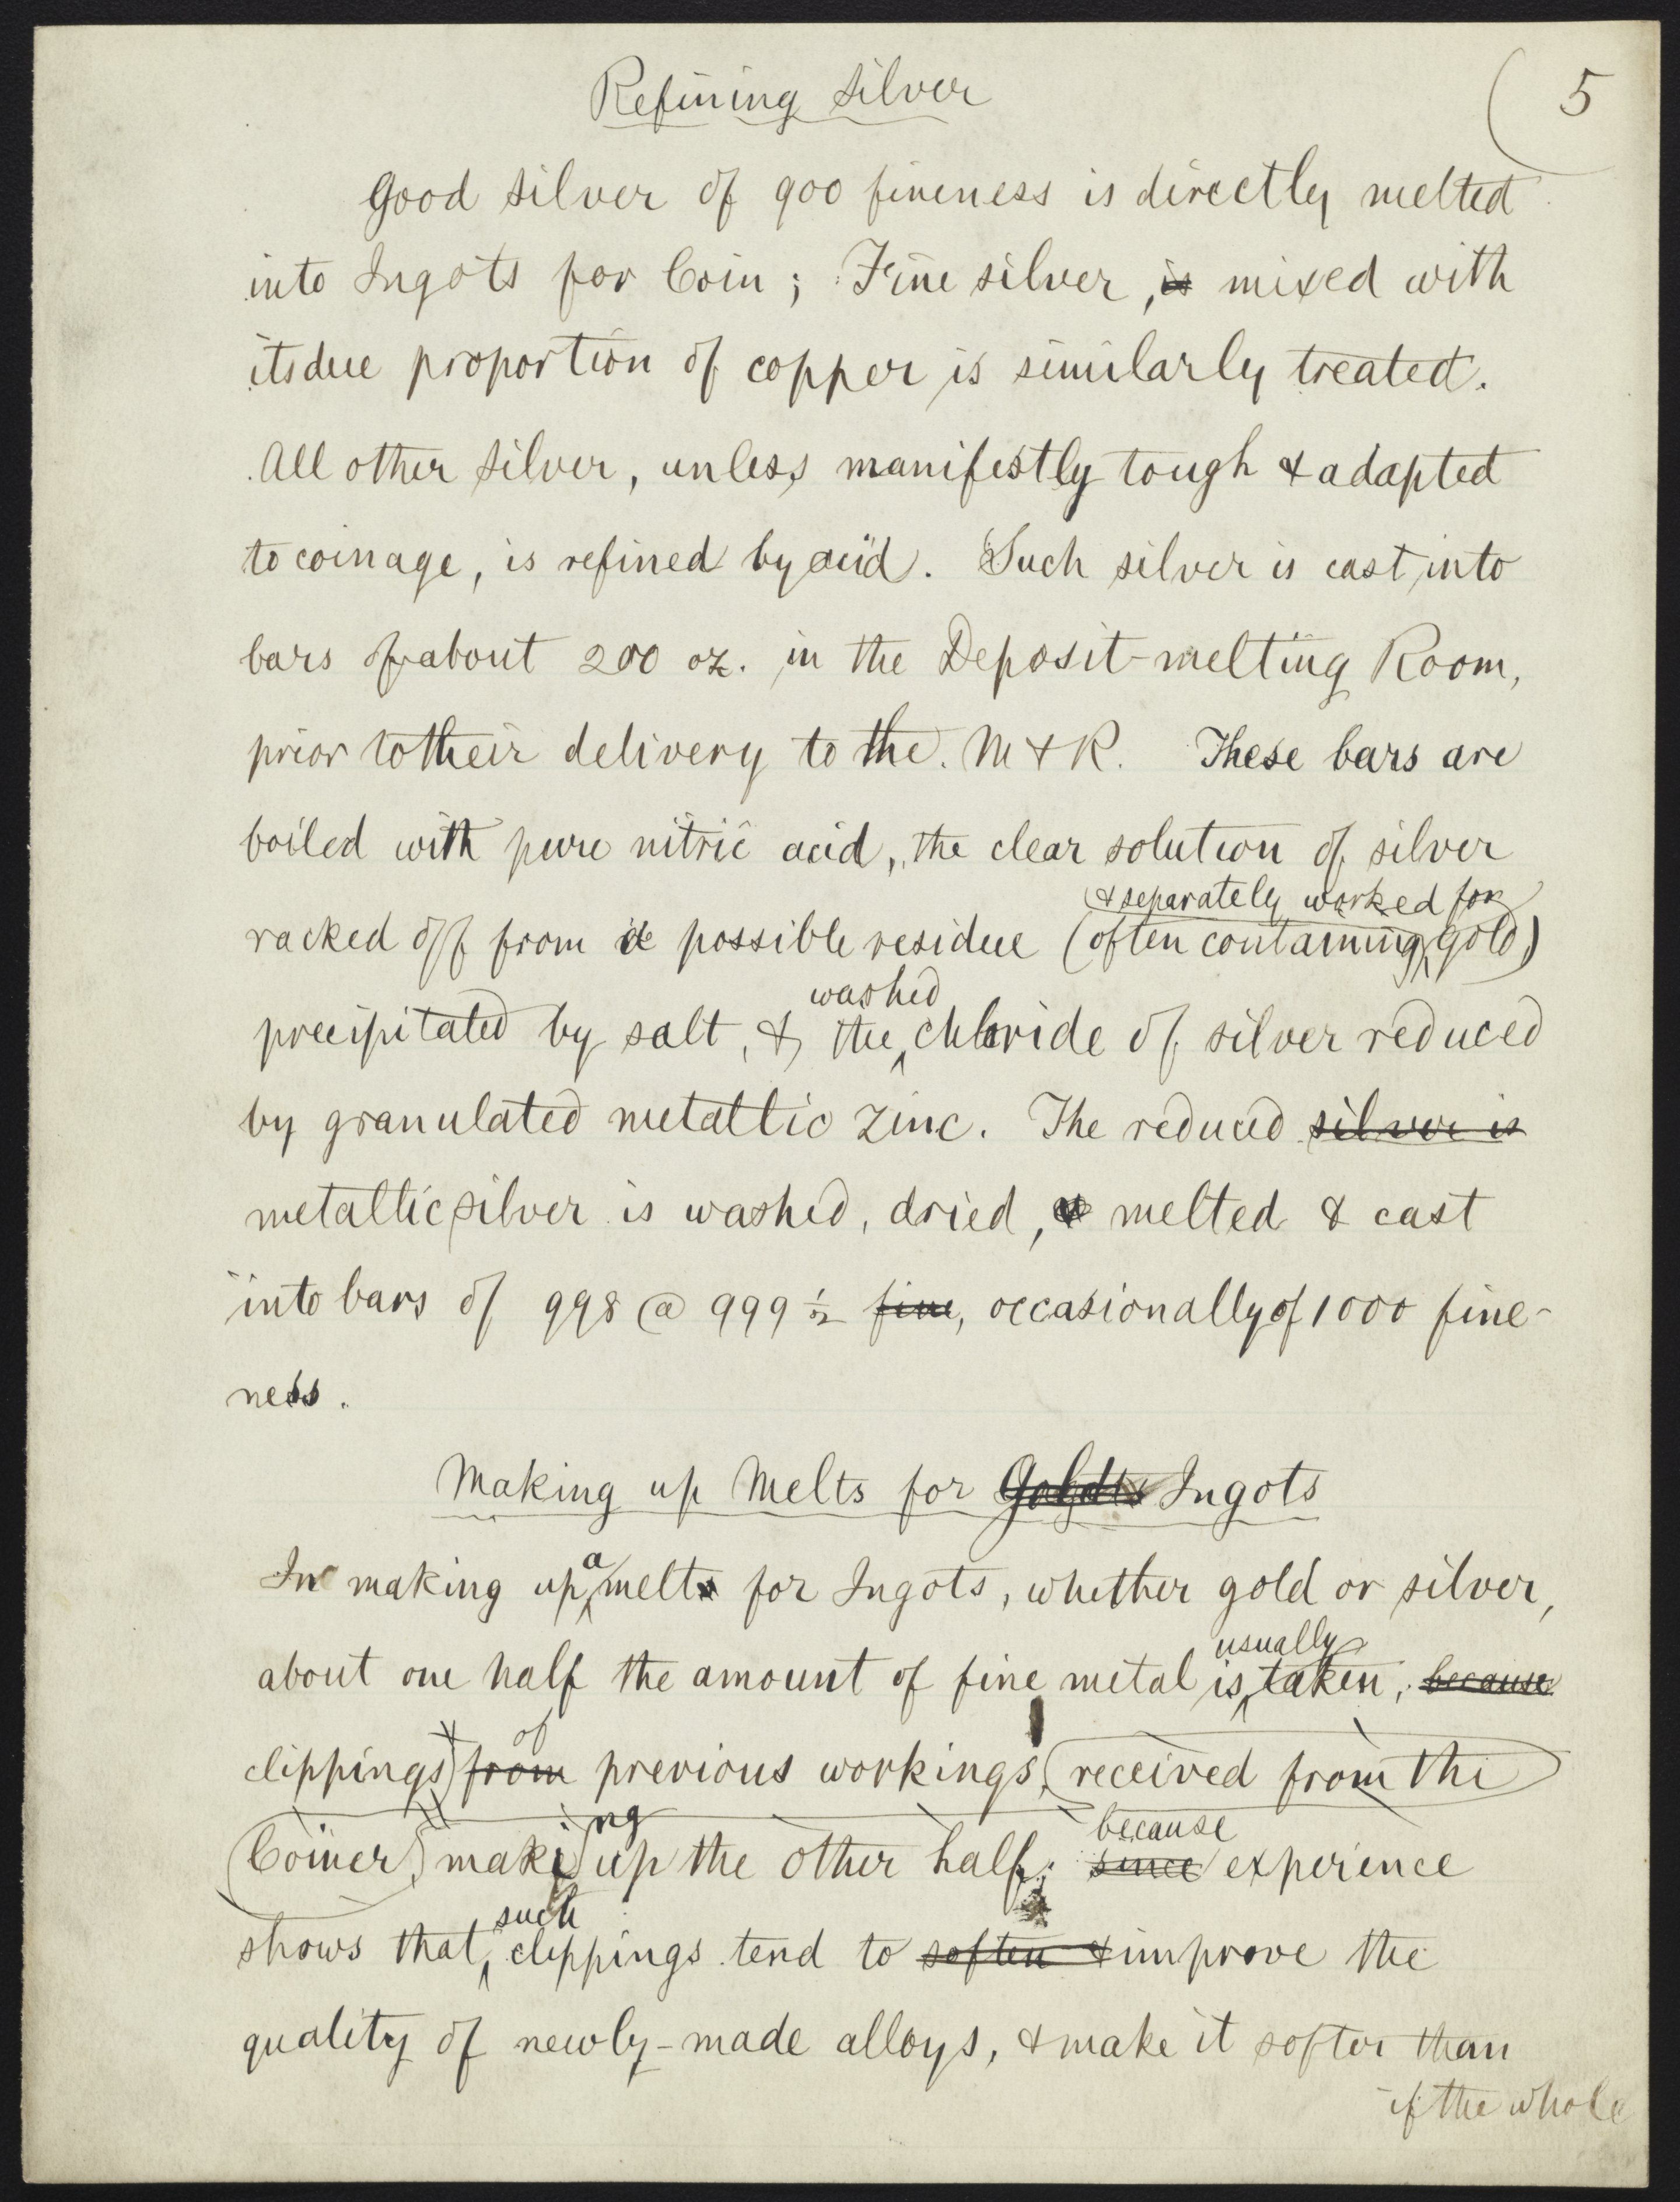 Refining Silver
5
Good silver of 900 fineness is directly melted
into Ingots for Coin; Fine silver, is mixed with
its due proportion of copper is similarly treated.
All other silver, unless manifestly tough & adapted
to coinage, is refined by acid. Such silver is cast into
bars of about 200 oz. in the Deposit-melting Room,
prior to their delivery to the M & R. These bars are
boiled with pure nitric acid, the clear solution of silver
& separately worked for
racked off from possible residue (often containing gold)
washed
precipitated by salt, & the chloride of silver reduced
by granulated metallic zinc. The reduced silver is
metallic silver is washed, dried, & melted & cast
into bars of 998 @ 999 ½ fine, occasionally of 1000 fine-
ness.
Making up Melts for Ingots
In making up a melts for Ingots, whether gold or silver,
usually
about one half the amount of fine metal is taken, because
of
clippings from previous workings, (received from the
ng because
Coiner,) making up the other half; since experience
such
shows that clippings tend to soften & improve the
quality of newly-made alloys, & make it softer than
if the whole